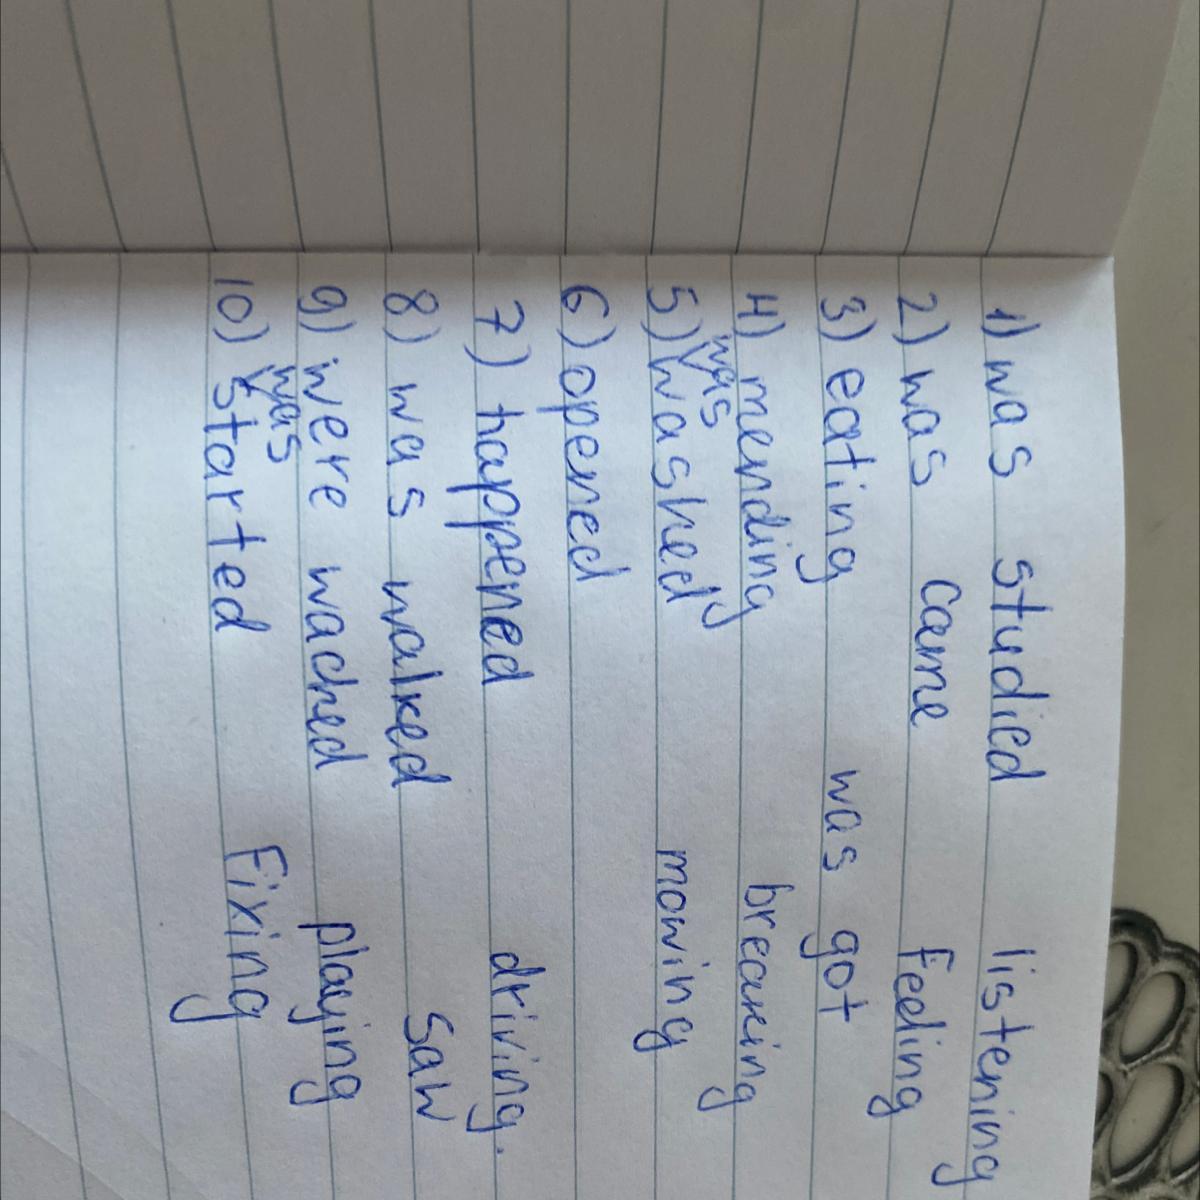 1) was studied listening
2) was came feeling
3) eating was got
4) mending breaking
5) was washed mowing
6) opened
7) happened driving.
8) was walked saw
9) were wached playing
10) was started Fixing